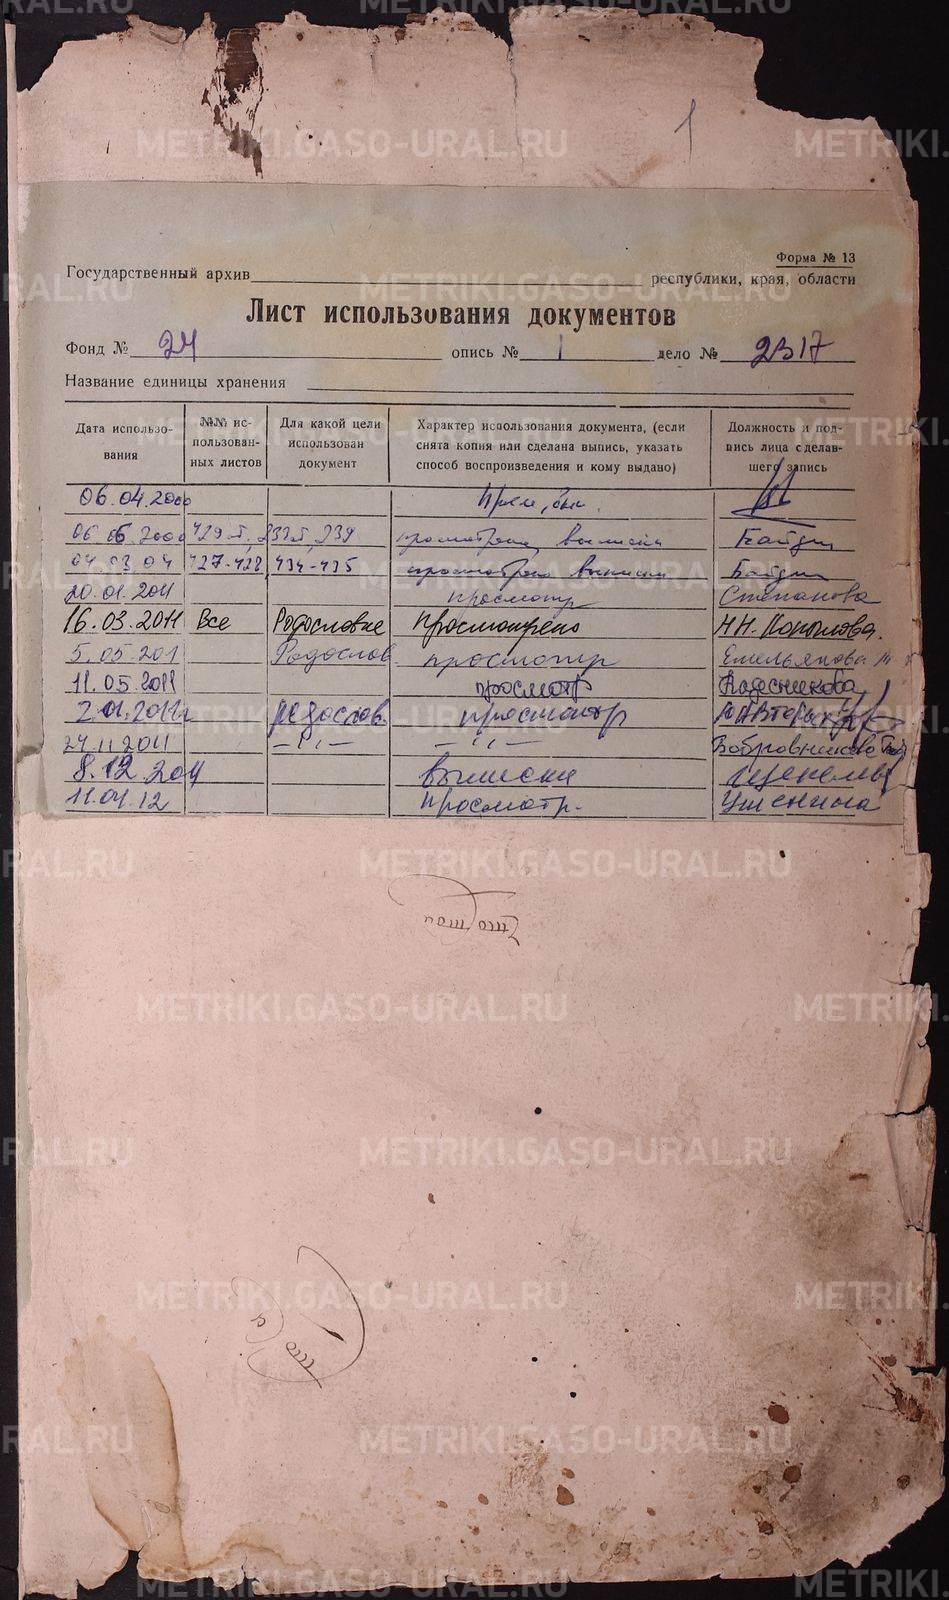 1
Форма № 13
Государственный архив республики, края, области
Лист использования документов
Фонд № 24 опись № 1 дело № 2317
Название единицы хранения
Дата использования
№№ использованных листов
Для какой цели использован документ
Характер использования документа, (если снята копия или сделана выпись, указать способ воспроизведения и кому выдано)
Должность и подпись лица сделавшего запись
06.04.2000
06.06.2000 просмотрена, выписки
04 03 04 427-428, 434-435 просмотрено выписки
20.01.2011 просмотр Степанова
16.03.2011 Все Родословие Просмотрено Н.Н. Копылова.
5.05.201 Родослов. просмотр Емельянова
11.05.2011 просмотр Колесникова
Родослов. просмотр
24.11.2011 —"— —"— Бобровникова
8.12.2011 выписки
11.04.12 Просмотр. Ушенина
METRIKI.GASO-URAL.RU